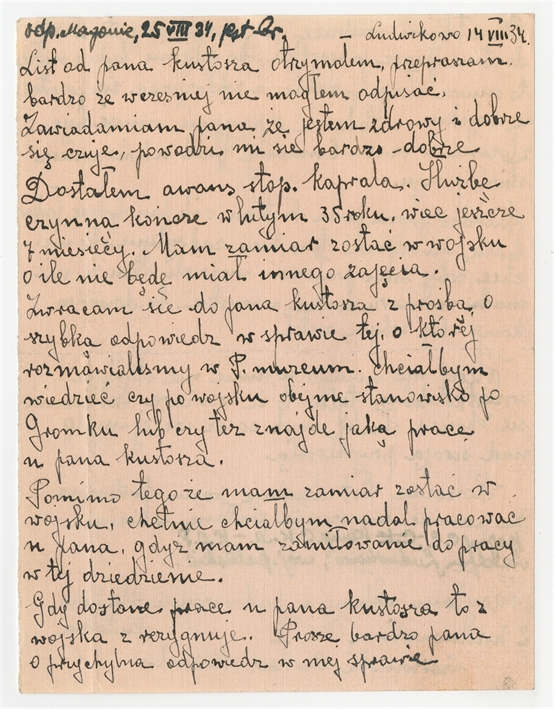 odp. Magonie, 25 VIII 34, pgt Gr.
— Ludwikowo 14 VIII 34.
List od pana kustosza otrzymałem, przepraszam
bardzo że wczesniej nie magłem odpisać.
Zawiadamiam pana że jestem zdrowy i dobrze
się czuje, powodzi mi sie bardzo dobrze
Dostałem awans stop. kaprala. Służbe
czynną kończe w lutym 35 roku, wiec jeszcze
7 miesięcy. Mam zamiar zostać w wojsku
o ile nie będę miał innego zajęcia.
Zwracam się do pana kustosza z prośbą, o
szybka odpowiedz w sprawie tej, o której
rozmawialismy w P. muzeum. chciałbym
wiedzieć czy po wojsku obejme stanowisko po
Gromku lub czy też znajde jaką pracę
u pana kustosza.
Pomimo tego że mam zamiar zostac w
wojsku, chetnie chciałbym nadal pracować
u pana, gdyż mam zamiłowanie do pracy
w tej dziedzienie.
Gdy dostane prace u pana kustosza to z
wojska z rezygnuje. Prosze bardzo pana
o przychylna odpowiedz w mej sprawie